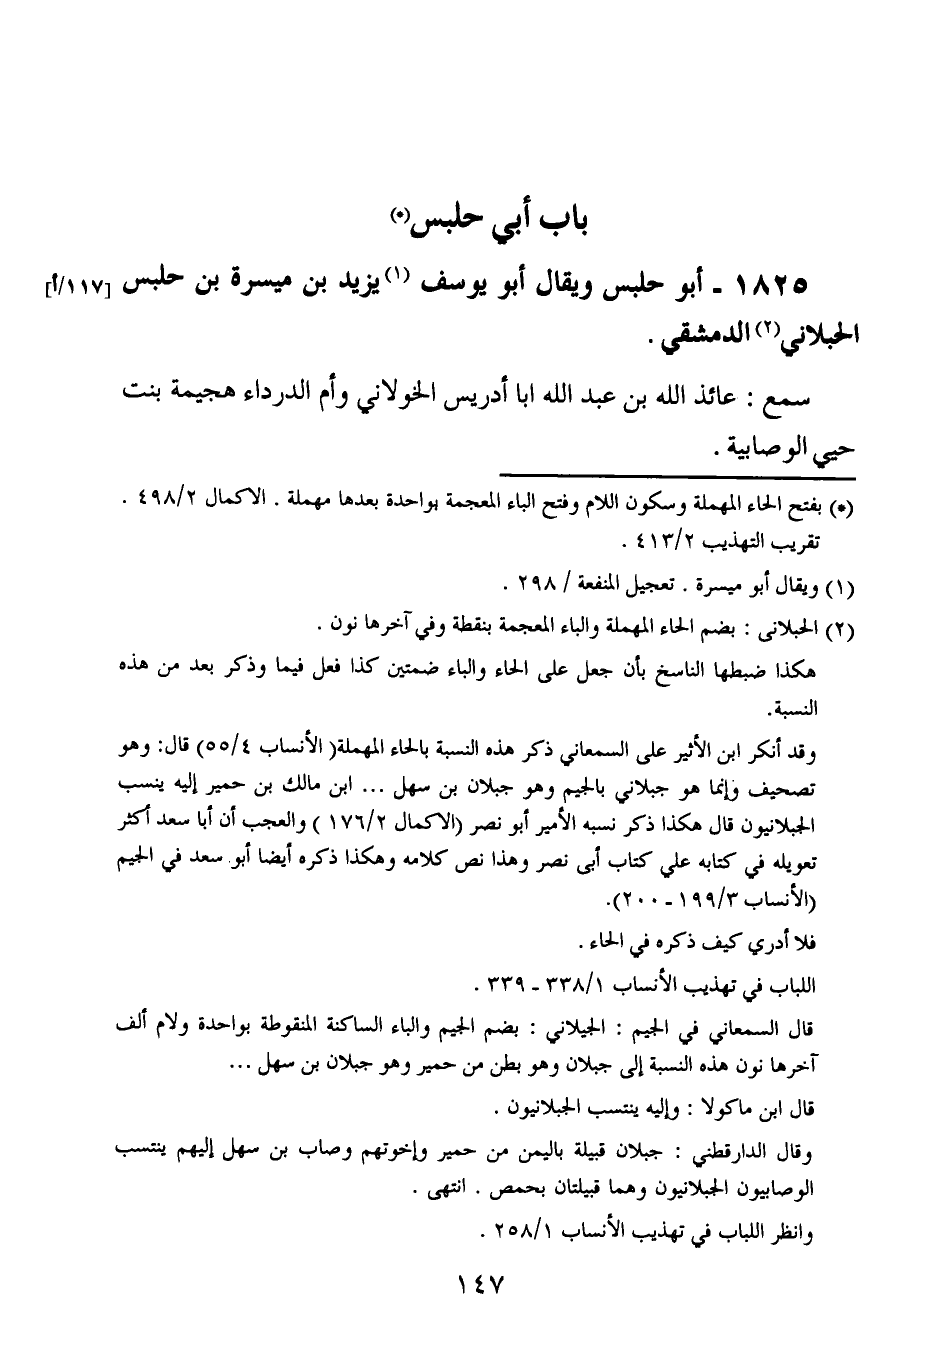 باب أبي حلبس(*)
١٨٢٥ - أبو حلبس ويقال أبو يوسف (١) يزيد بن ميسرة بن حلبس [١١٧/أ]
الحبلاني(٢) الدمشقي .
سمع : عائذ الله بن عبد الله ابا أدريس الخولاني وأم الدرداء هجيمة بنت
حيي الوصابية .
(*) بفتح الحاء المهملة وسكون اللام وفتح الباء المعجمة بواحدة بعدها مهملة . الاكمال ٤٩٨/٢ .
تقريب التهذيب ٤١٣/٢ .
(١) ويقال أبو ميسرة . تعجيل المنفعة / ٢٩٨ .
(٢) الحبلانى : بضم الحاء المهملة والباء المعجمة بنقطة وفي آخرها نون .
هكذا ضبطها الناسخ بأن جعل على الحاء والباء ضمتين كذا فعل فيما وذكر بعد من هذه
النسبة.
وقد أنكر ابن الأثير على السمعاني ذكر هذه النسبة بالحاء المهملة( الأنساب ٥٥/٤) قال: وهو
تصحيف وإنما هو جبلاني بالجيم وهو جبلان بن سهل ... ابن مالك بن حمير إليه ينسب
الجبلانيون قال هكذا ذكر نسبه الأمير أبو نصر (الاكمال ١٧٦/٢ ) والعجب أن أبا سعد أكثر
تعويله في كتابه علي كتاب أبى نصر وهذا نص كلامه وهكذا ذكره أيضا أبو سعد في الجيم
(الأنساب ١٩٩/٣ - ٢٠٠).
فلا أدري كيف ذكره في الحاء .
اللباب في تهذيب الأنساب ٣٣٨/١ - ٣٣٩ .
قال السمعاني في الجيم : الجيلاني : بضم الجيم والباء الساكنة المنقوطة بواحدة ولام ألف
آخرها نون هذه النسبة إلى جبلان وهو بطن من حمير وهو جبلان بن سهل ...
قال ابن ماكولا : وإليه ينتسب الجبلانيون .
وقال الدارقطني : جبلان قبيلة باليمن من حمير وإخوتهم وصاب بن سهل إليهم ينتسب
الوصابيون الجبلانيون وهما قبيلتان بحمص . انتهى .
وانظر اللباب في تهذيب الأنساب ٢٥٨/١ .
١٤٧